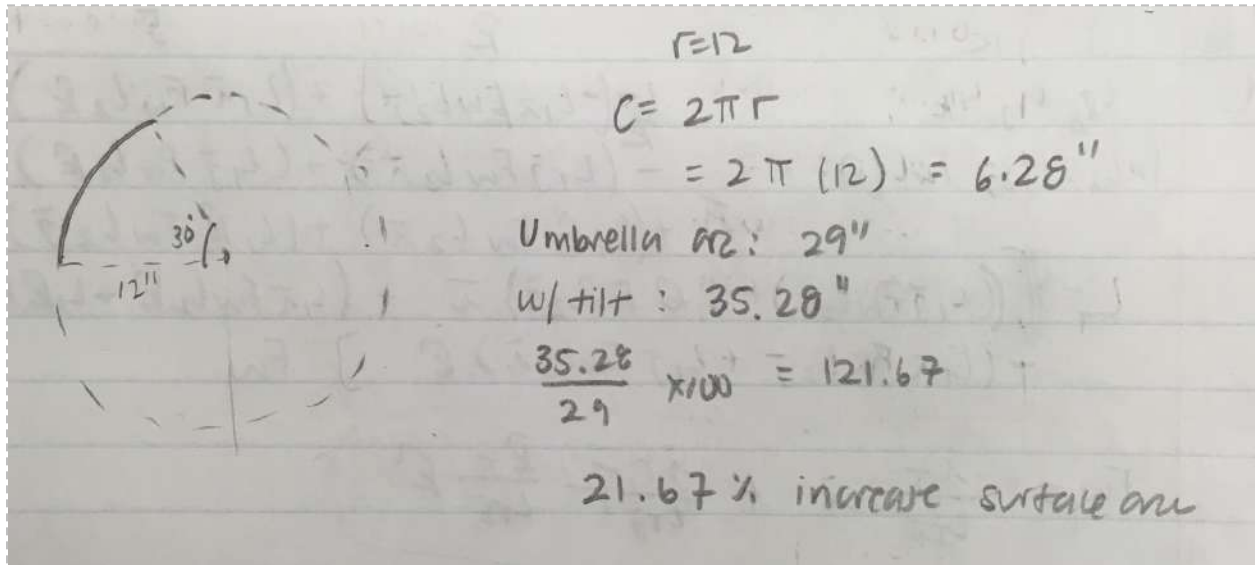 r=12
C= 2πr
= 2π (12) = 6.28"
30°
12"
Umbrella arc: 29"
w/ tilt : 35.28"
35.28
29
x100 = 121.67
21.67 % increase surface arc